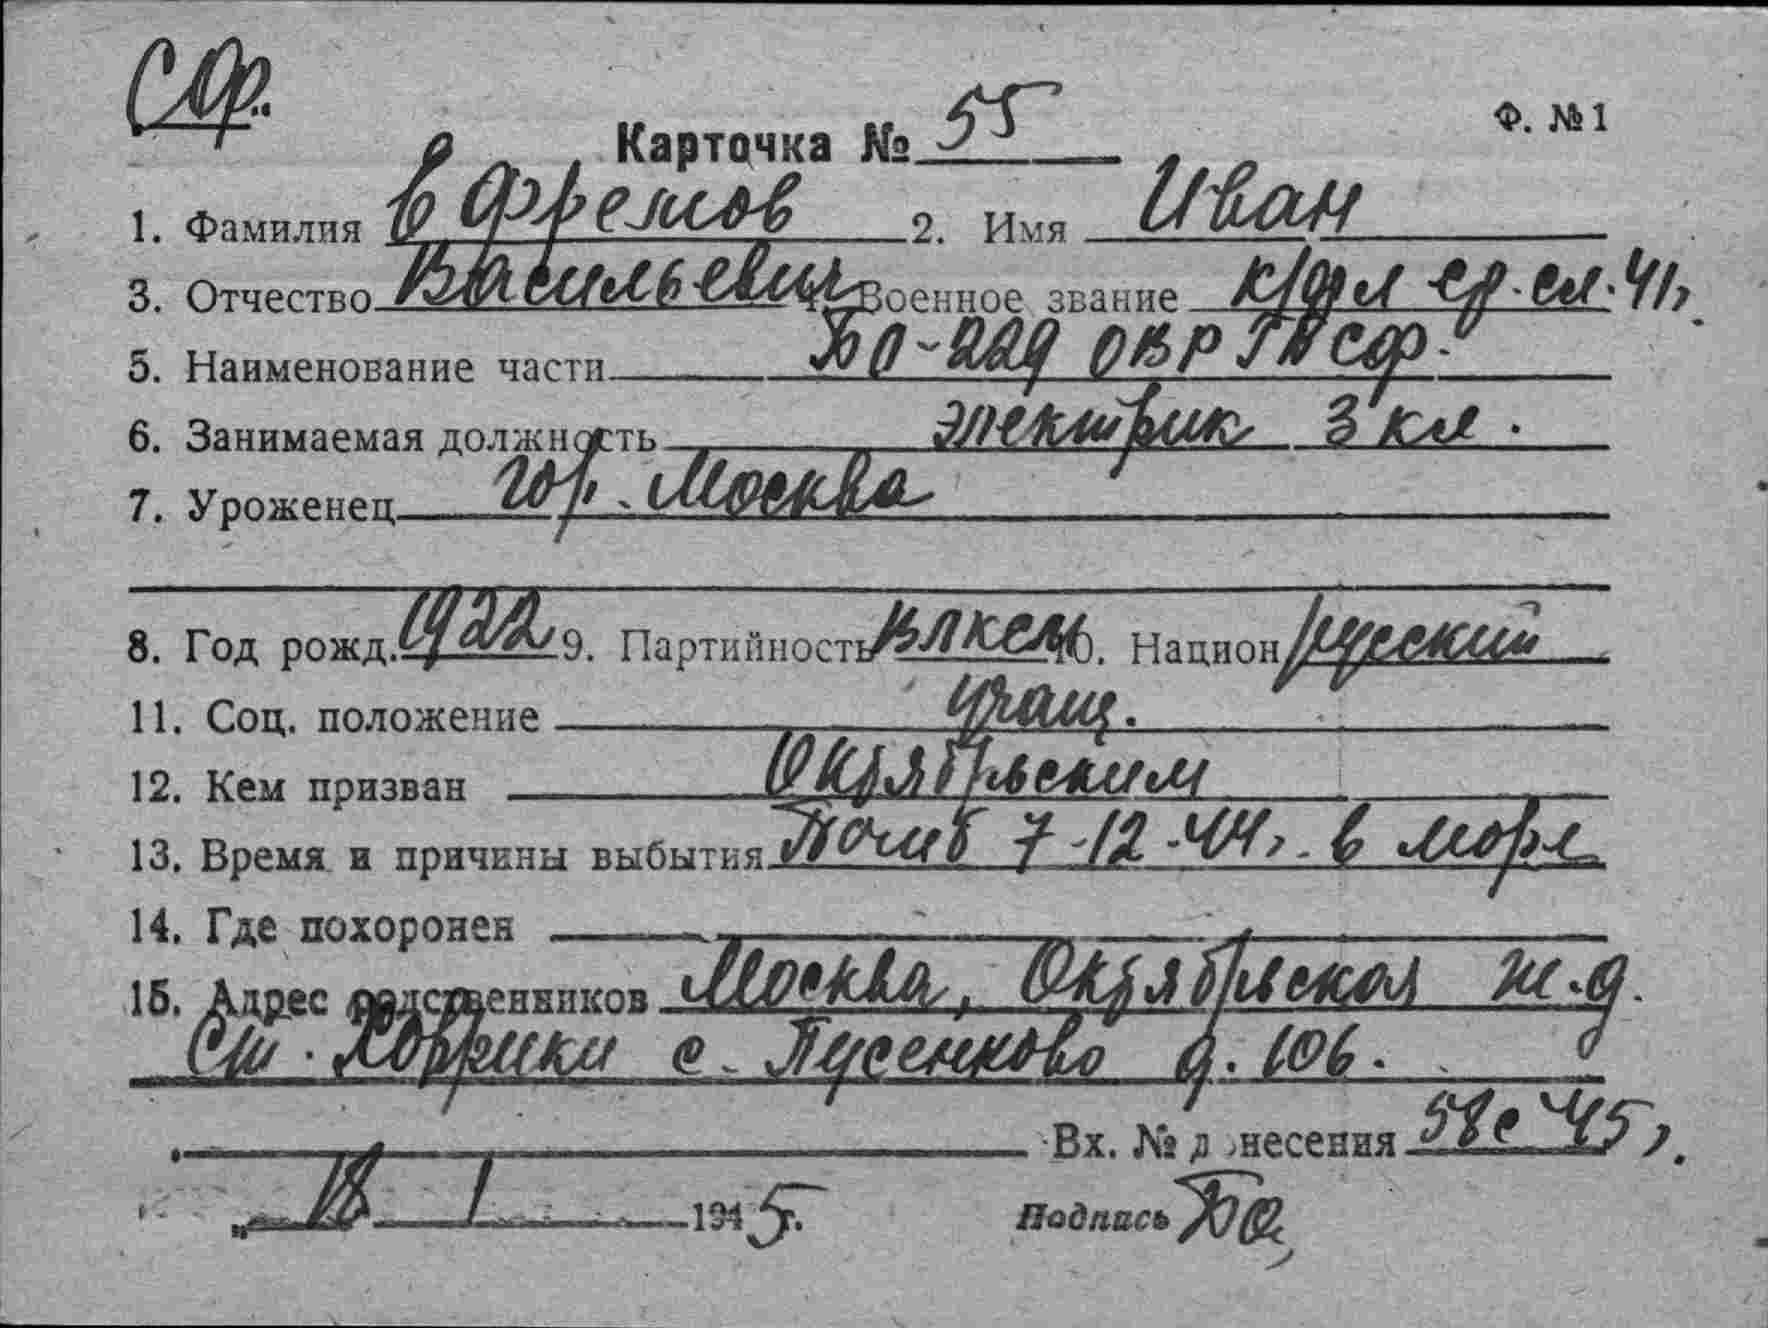 СФ.
Карточка № 55 Ф. №1
1. Фамилия Ефремов 2. Имя Иван
3. Отчество Васильевич 4. Военное звание к/фл ср. сл. 41г.
5. Наименование части БО-229 ОВР ГБ СФ.
6. Занимаемая должность электрик 3 кл.
7. Уроженец гор. Москва
8. Год рожд. 1922 9. Партийность ВЛКСМ 10. Национ русский
11. Соц. положение учащ.
12. Кем призван Октябрьским
13. Время и причины выбытия Погиб 7-12-44г. в море
14. Где похоронен
15. Адрес родственников Москва, Октябрьская ж.д.
ст. Ховрики с. Пусенково д. 106.
Вх. № донесения 58с 45г.
„18 1 1945г. Подпись